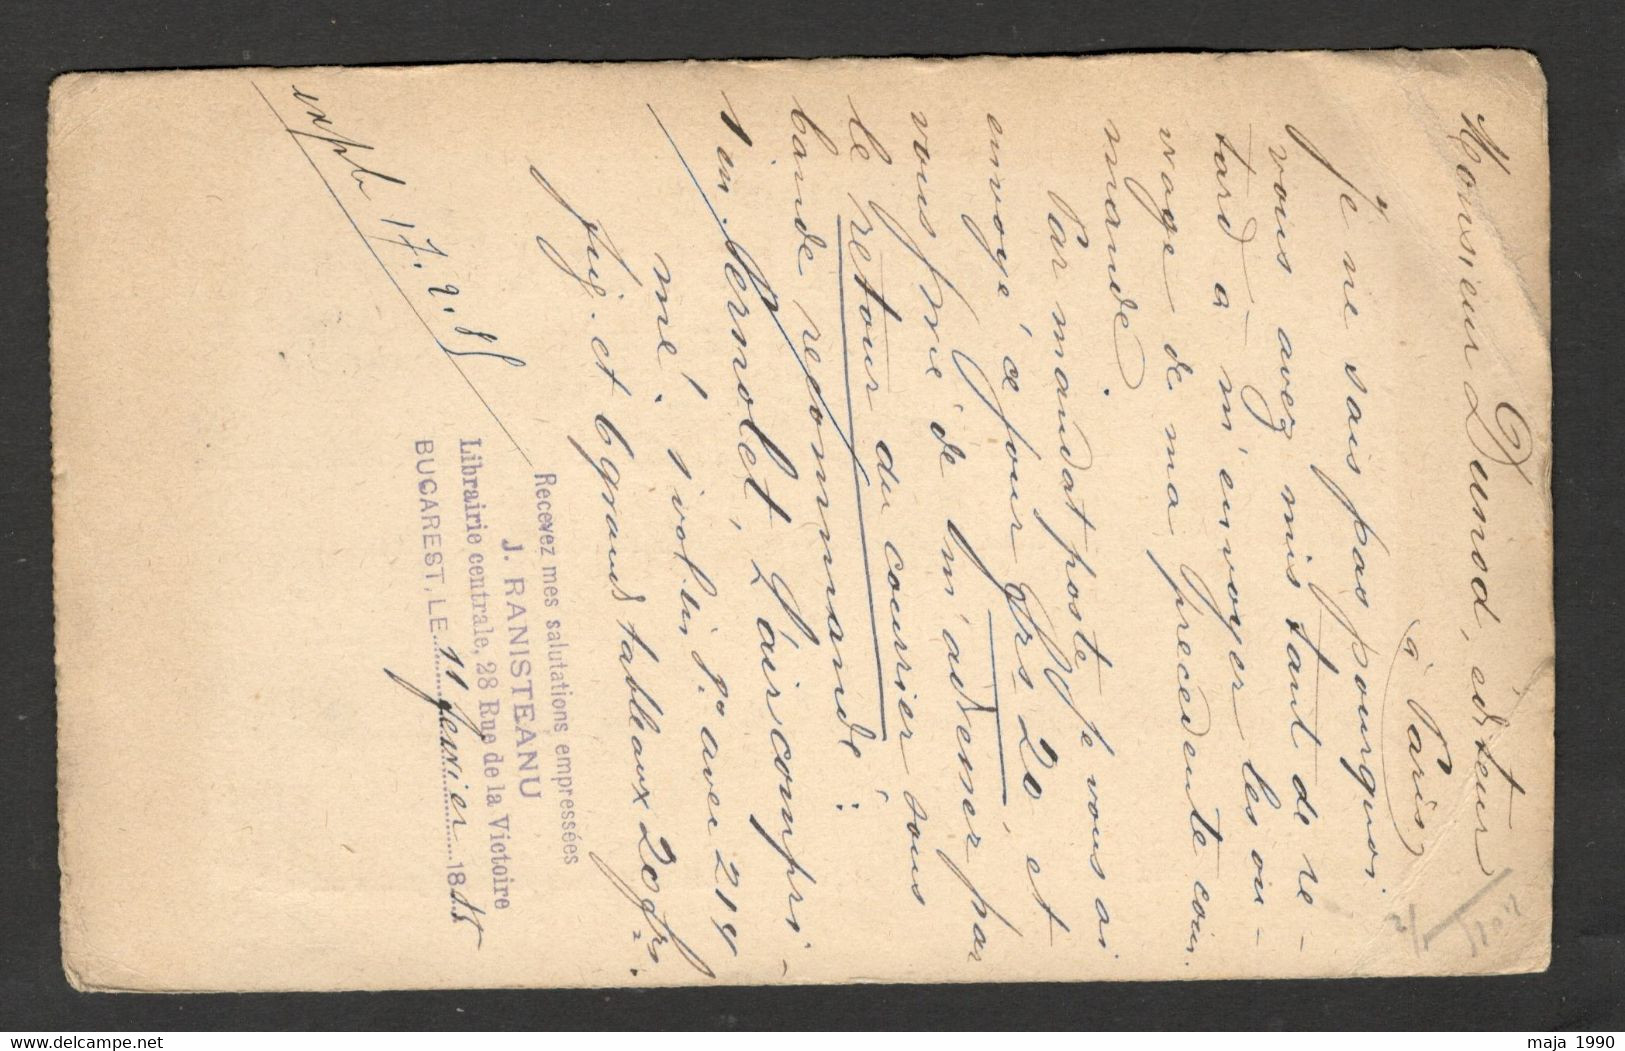 Monsieur Dunod, editeur
à Paris
Je ne sais pas pourquoi
vous avez mis tant de re-
tard à m'envoyer les ou-
vrage de ma precedente com
mande.
Par mandat poste je vous ai
envoyé ce jour frs 20 et
vous prie de m'adresser par
le retour du courrier sous
bande recommandé:
1 ex. Pernolet, L'air compri-
mé. 1 vol. in 8º avec 214
fig. et 6 grands tableaux 20 frs.
Recevez mes salutations empressées
J. RANISTEANU
Librairie centrale, 28 Rue de la Victoire
BUCAREST, LE 11 fevrier 1885
exp 17.2.85
maja 1990